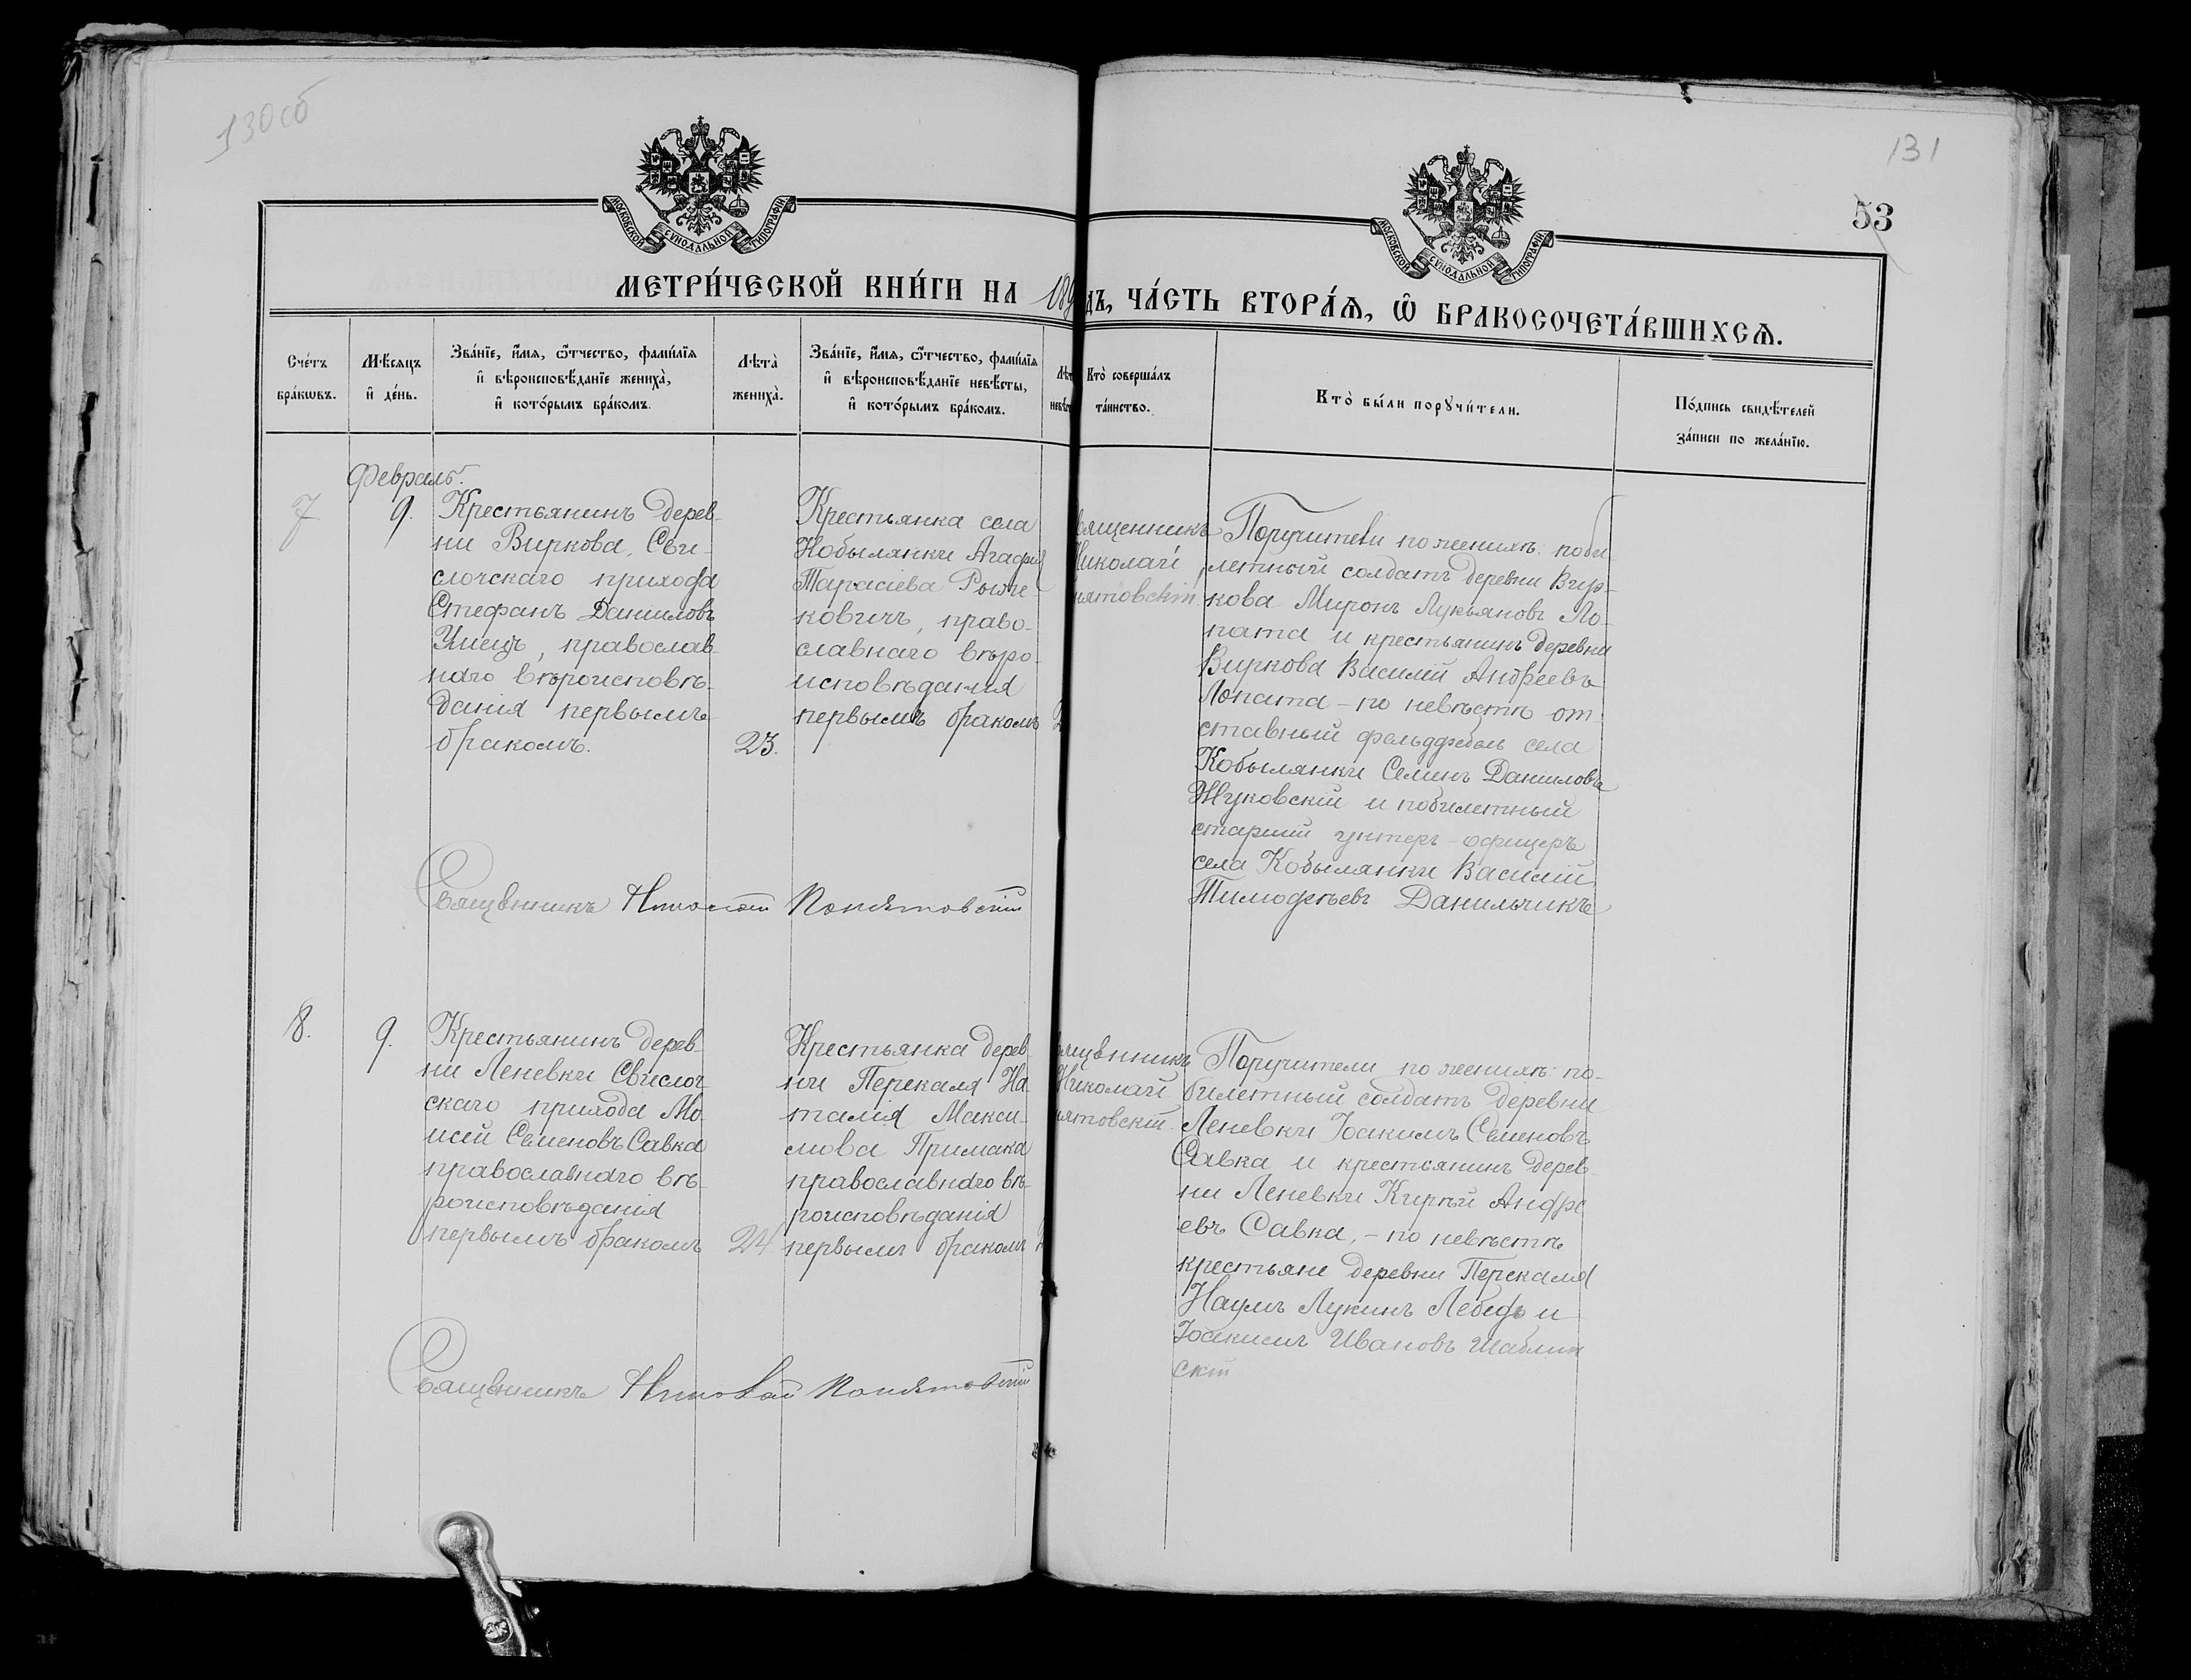 130об
131
53
МОСКОВСКОЙ СѴНОДАЛЬНОЙ ТИПОГРАФІИ
МОСКОВСКОЙ СѴНОДАЛЬНОЙ ТИПОГРАФІИ
МЕТРИ́ЧЕСКОЙ КНИ́ГИ НА 189
дъ, ЧА́СТЬ ВТОРА́Ѧ, Ѽ БРАКОСОЧЕТА́ВШИХСѦ.
Сче́тъ
бра́кѡвъ.
Мѣ́сѧцъ
и҆ де́нь.
Зва́нїе, и҆́мѧ, ѻ҆́тчество, фами́лїѧ
и҆ вѣроисповѣ́данїе жениха̀,
и҆ кото́рымъ бра́комъ.
Лѣта̀
жениха̀.
Зва́нїе, и҆́мѧ, ѻ҆́тчество, фами́лїѧ
и҆ вѣроисповѣ́данїе невѣ́сты,
и҆ кото́рымъ бра́комъ.
Лѣт
невѣс
Кто̀ соверша́лъ
та́инство.
Кто̀ бы́ли порꙋчи́тели.
По́дпись свидѣ́телей
за́писи по жела́нїю.
Февраль.
7
9.
Крестьянинъ дерев-
ни Виркова, Сви-
слочскаго прихода
Стефанъ Даниловъ
православ-
наго вѣроисповѣ-
данія первымъ
бракомъ.
23.
Крестьянка села
Кобылянки Агафія
Тарасіева
ковичъ, право-
славнаго вѣро-
исповѣданія
первымъ бракомъ
вященникъ
Николай
нятовскій
Поручители по женихѣ: поби
летный солдатъ деревни Вир-
кова Миронъ Лукьяновъ Ло-
пата и крестьянинъ деревни
Виркова Василій Андреевъ
Лопата – по невѣстѣ от-
ставный фельдфебель села
Кобылянки Семенъ Даниловъ
Жуковскій и побилетный
старшій унтеръ-офицеръ
села Кобылянки Василій
Тимофѣевъ Данильчикъ
Священникъ Николай Понятовскій
8.
9.
Крестьянинъ дерев-
ни Леневки Свислоч
скаго прихода Мо-
исей Семеновъ Савка
православнаго вѣ-
роисповѣданія
первымъ бракомъ
24.
Крестьянка дерев-
ни Перекаля На-
талія Макси-
мова Примака
православнаго вѣ-
роисповѣданія
первымъ бракомъ
ященникъ
Николай
нятовскій.
Поручители по женихѣ: по-
билетный солдатъ деревни
Леневки Іоакимъ Семеновъ
Савка и крестьянинъ дерев-
ни Леневки Кирѣй Андре
евъ Савка, – по невѣстѣ
крестьяне деревни Перекаля
Наумъ Лукинъ Лебедь и
Іоакимъ Ивановъ Шаблин
скій
Священникъ Николай Понятовскій